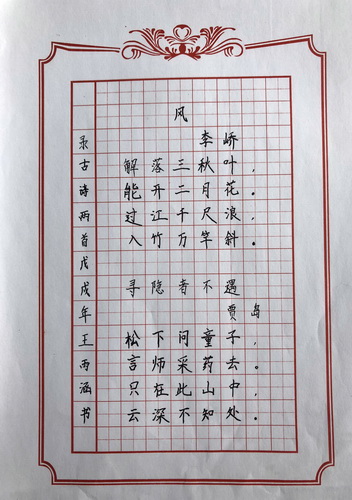 风
李峤
解落三秋叶，
能开二月花。
过江千尺浪，
入竹万竿斜。
寻隐者不遇
贾岛
松下问童子，
言师采药去。
只在此山中，
云深不知处。
录古诗两首戊戌年王雨涵书